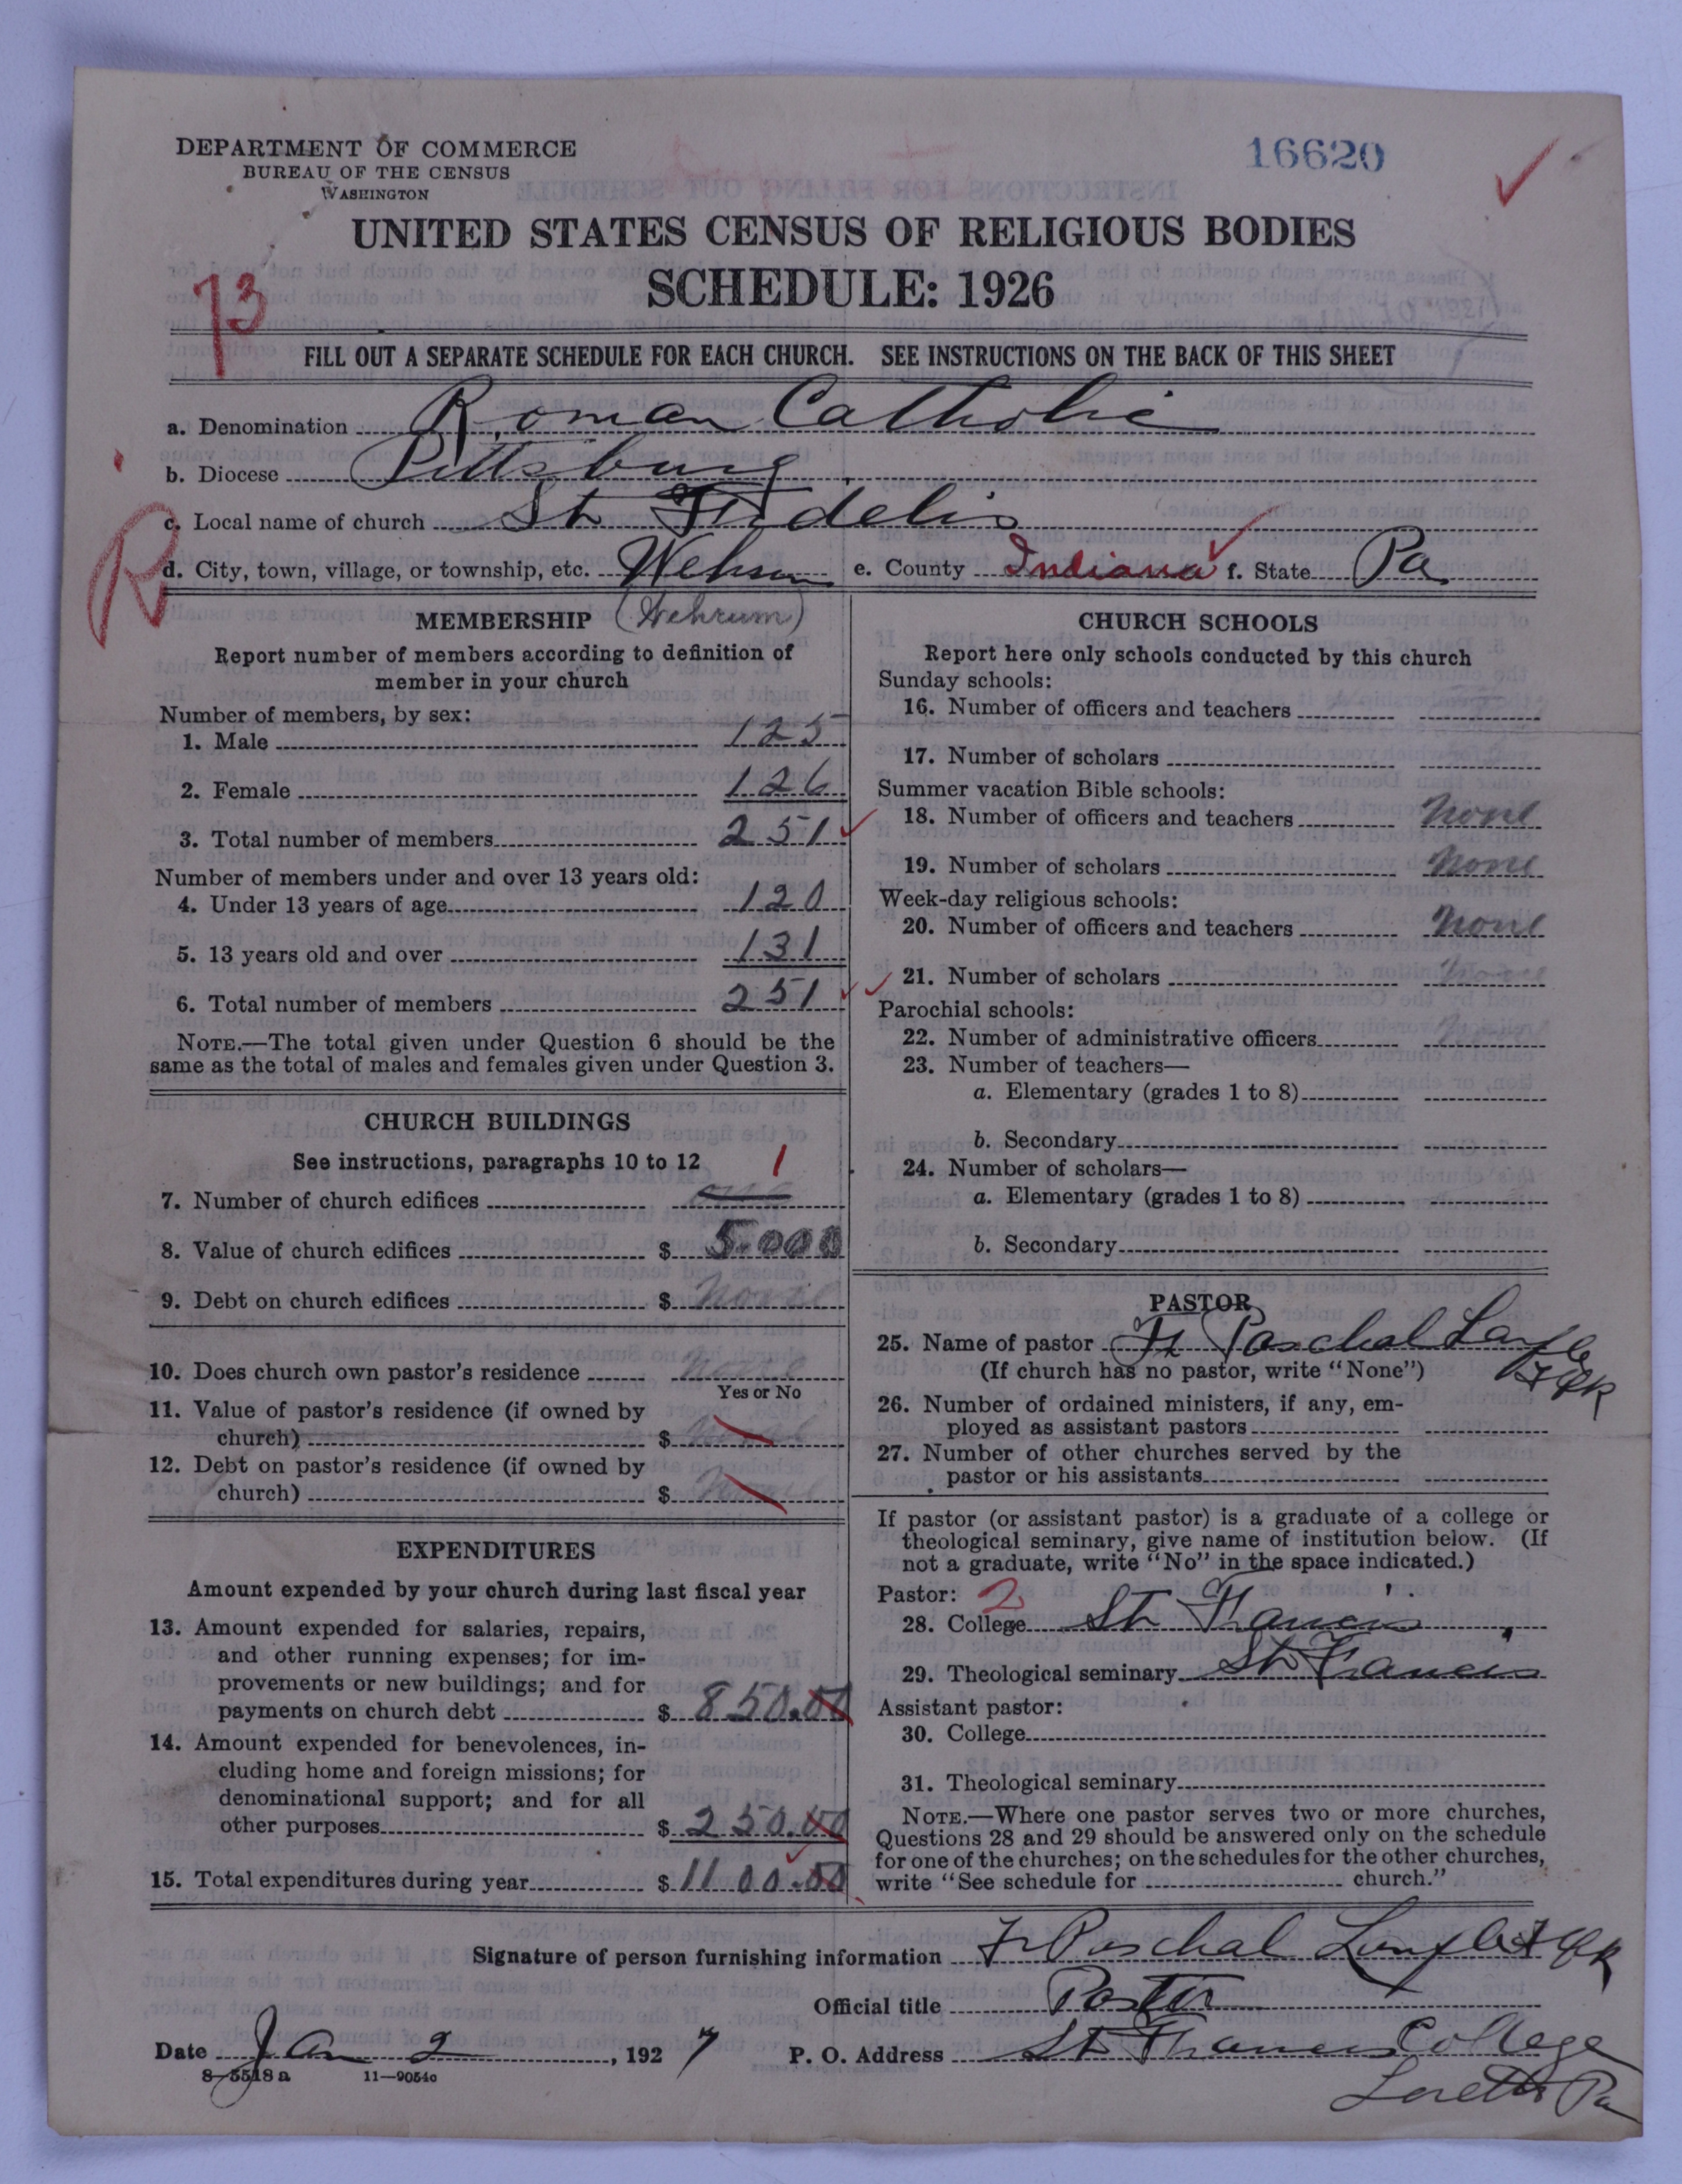 DEPARTMENT OF COMMERCE
BUREAU OF THE CENSUS
WASHINGTON
16620
UNITED STATES CENSUS OF RELIGIOUS BODIES
SCHEDULE: 1926
73
FILL OUT A SEPARATE SCHEDULE FOR EACH CHURCH. SEE INSTRUCTIONS ON THE BACK OF THIS SHEET
a. Denomination Roman Catholic
b. Diocese Pittsburg
c. Local name of church St Fidelis
R
d. City, town, village, or township, etc. Wehrum e. County Indiana f. State Pa
MEMBERSHIP (Wehrum)
Report number of members according to definition of
member in your church
Number of members, by sex:
1. Male 125
2. Female 126
3. Total number of members 251
Number of members under and over 13 years old:
4. Under 13 years of age 120
5. 13 years old and over 131
6. Total number of members 251
NOTE.—The total given under Question 6 should be the
same as the total of males and females given under Question 3.
CHURCH BUILDINGS
See instructions, paragraphs 10 to 12
7. Number of church edifices one 1
8. Value of church edifices $ 5.000
9. Debt on church edifices $ None
10. Does church own pastor's residence none
Yes or No
11. Value of pastor's residence (if owned by
church) $
12. Debt on pastor's residence (if owned by
church) $
EXPENDITURES
Amount expended by your church during last fiscal year
13. Amount expended for salaries, repairs,
and other running expenses; for im-
provements or new buildings; and for
payments on church debt $ 850.00
14. Amount expended for benevolences, in-
cluding home and foreign missions; for
denominational support; and for all
other purposes $ 250.00
15. Total expenditures during year $ 1100.00
CHURCH SCHOOLS
Report here only schools conducted by this church
Sunday schools:
16. Number of officers and teachers
17. Number of scholars
Summer vacation Bible schools:
18. Number of officers and teachers none
19. Number of scholars none
Week-day religious schools:
20. Number of officers and teachers none
21. Number of scholars none
Parochial schools:
22. Number of administrative officers none
23. Number of teachers—
a. Elementary (grades 1 to 8)
b. Secondary
24. Number of scholars—
a. Elementary (grades 1 to 8)
b. Secondary
PASTOR
25. Name of pastor Fr Paschal
(If church has no pastor, write "None")
26. Number of ordained ministers, if any, em-
ployed as assistant pastors
27. Number of other churches served by the
pastor or his assistants
If pastor (or assistant pastor) is a graduate of a college or
theological seminary, give name of institution below. (If
not a graduate, write "No" in the space indicated.)
Pastor: 2
28. College St Francis
29. Theological seminary St Francis
Assistant pastor:
30. College
31. Theological seminary
NOTE.—Where one pastor serves two or more churches,
Questions 28 and 29 should be answered only on the schedule
for one of the churches; on the schedules for the other churches,
write "See schedule for church."
Signature of person furnishing information Fr Paschal
Official title Pastor
Date Jan 2, 1927 P. O. Address St Francis College
8-5518a 11-9054c
Loretto Pa